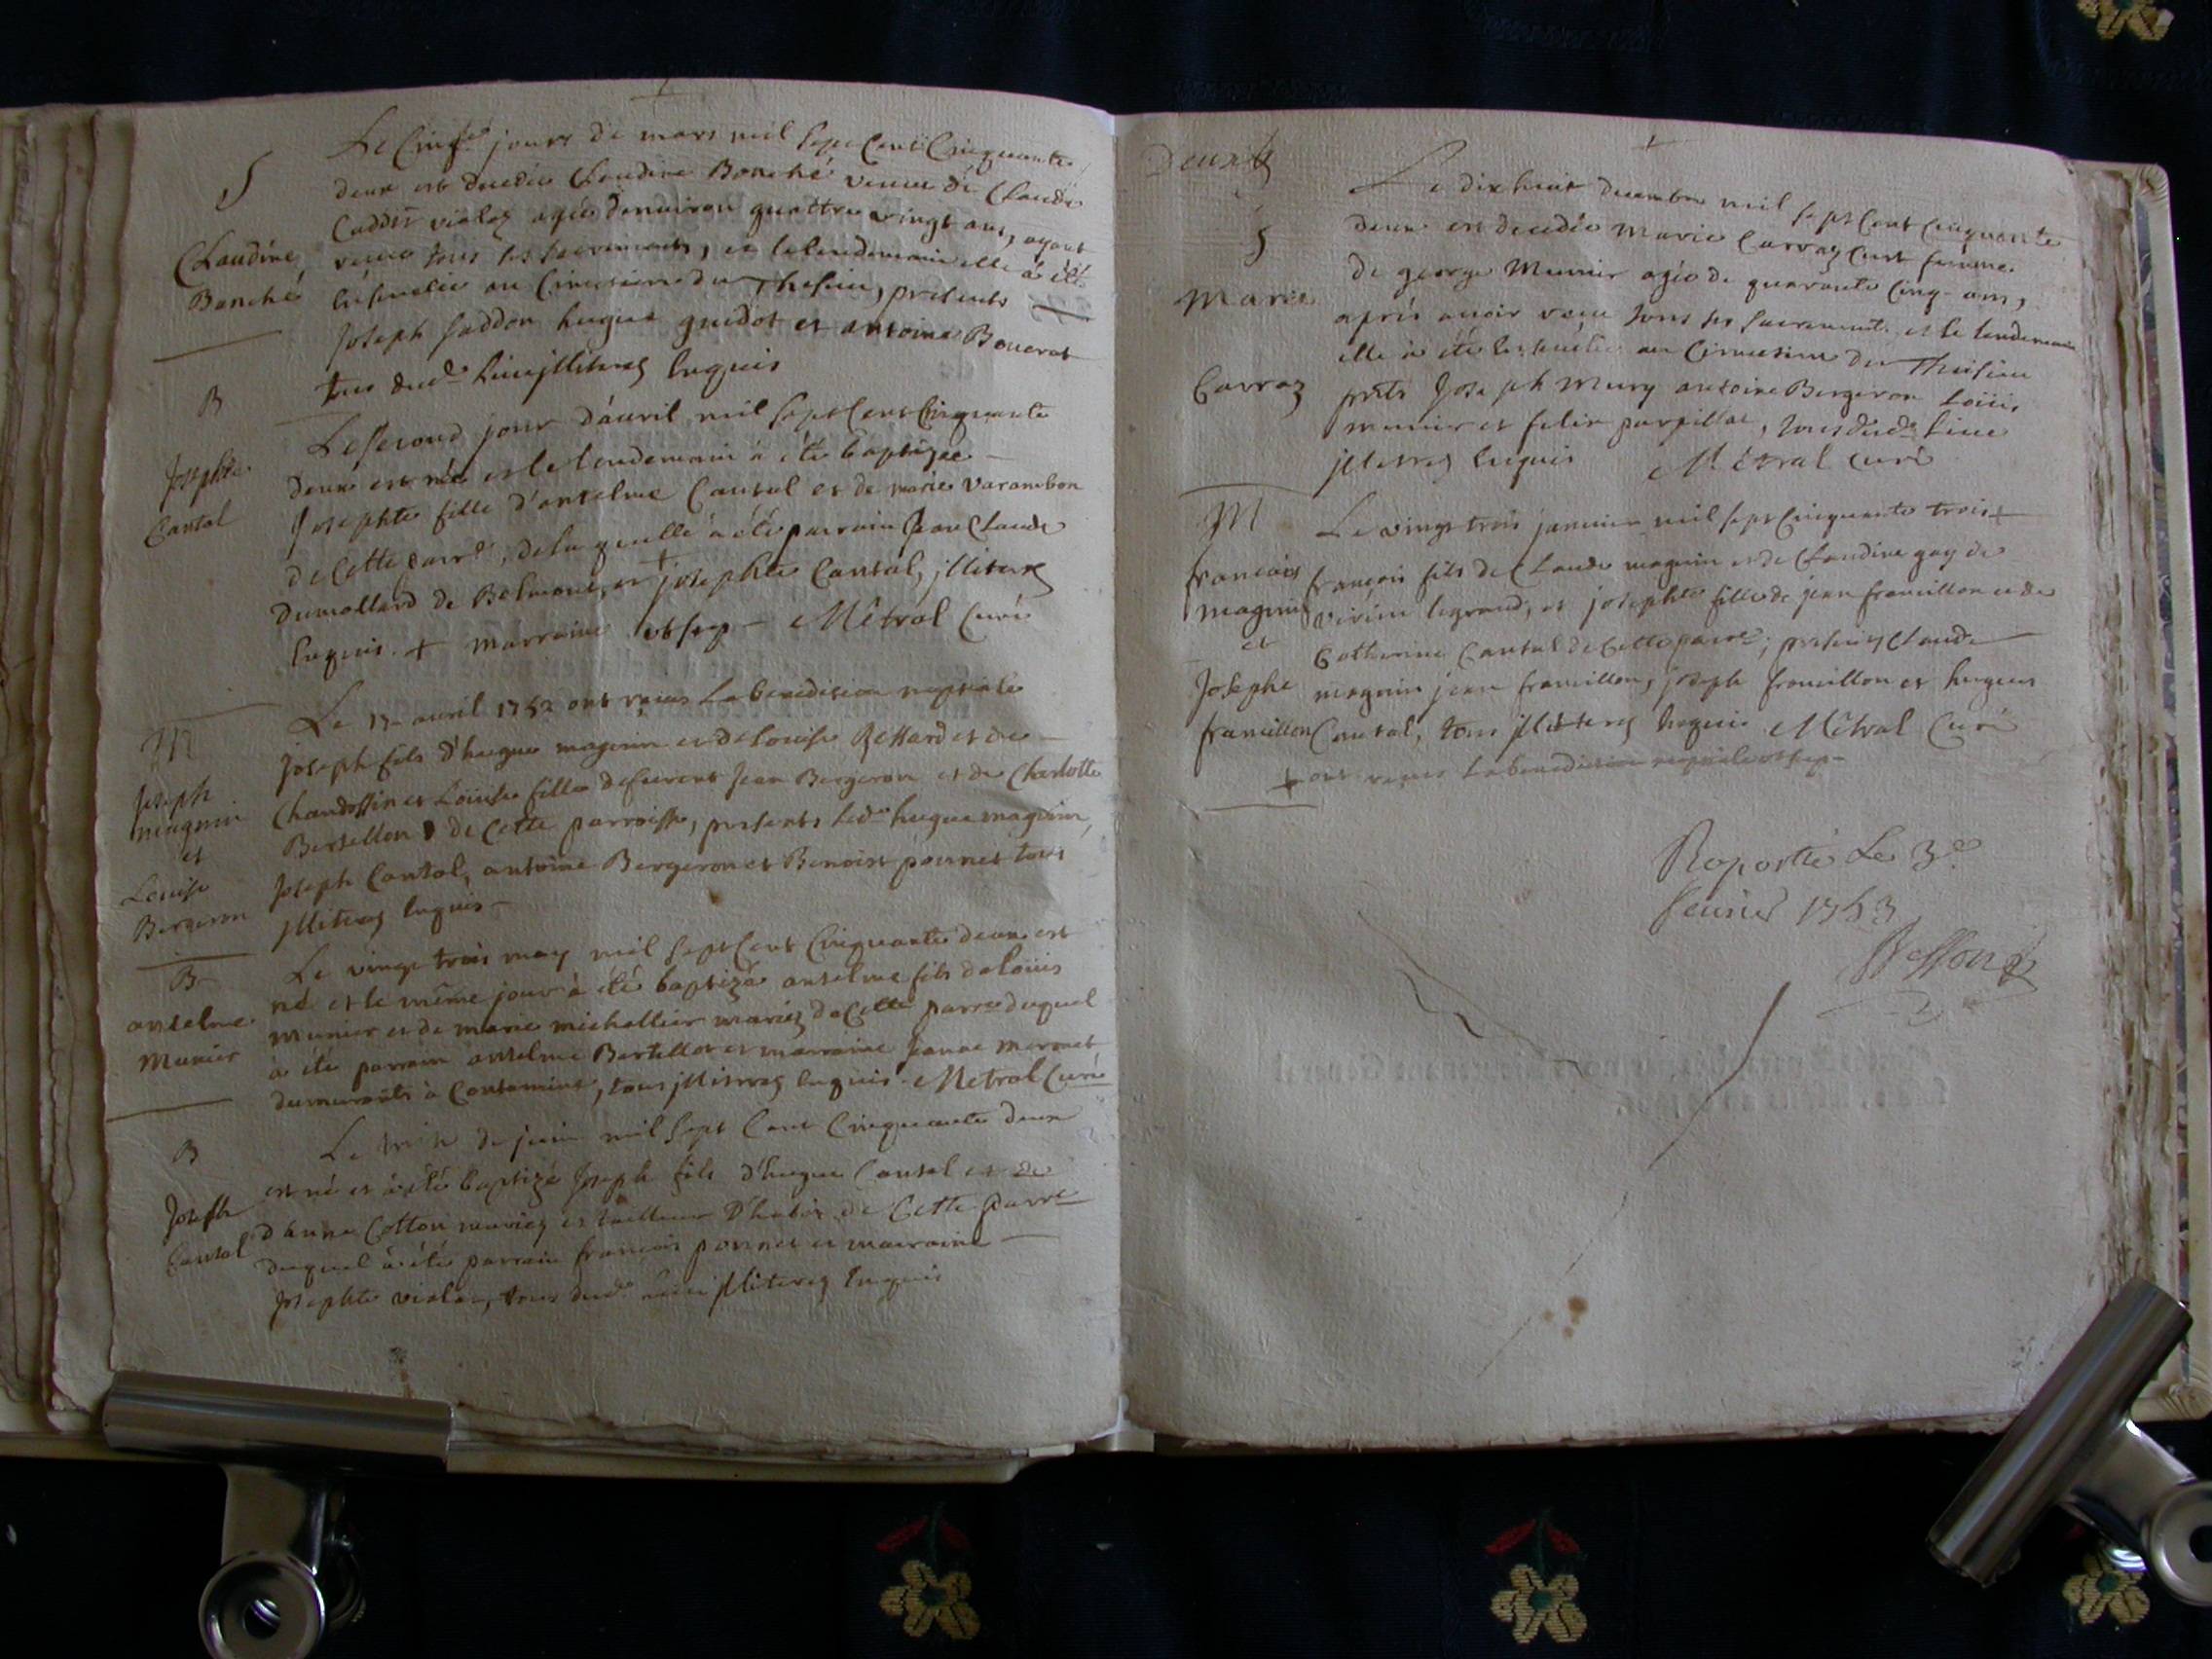 S
Claudine
Bonché
Le Cinqe jours de mars mil sept Cent Cinquante
deux est decedée Claudine Bonché veuve de Claude
Caddit violaz agée denviron quattre vingt ans, ayant
receu tous les sacrements, et le lendemain elle à été
au Cimetiere du Thesieu, presents
Joseph Saddon hugue guidot et antoine Bouerat
tus dud. lieu jlliteres
B
Josephte
Cantal
Le second jour d'avril mil sept Cent Cinquante
deux est née et le lendemain à été baptizee
Josephte fille d'anselme Cantal et de marie varambon
de Cette parre, de la quelle à été parrain Jean Claude
dumollard de Belmont, et + josephte Cantal, jlliteres
+ marraine Métral Curé
M
Joseph
magnin
et
Louise
Bergeron
Le 17 avril 1752 ont reçus La benediction nuptiale
joseph fils d'hugue magnin et de Louise et de
et Loüise fille de feu Jean Bergeron et de Charlotte
Bertellon de Cette parroisse, presents led. hugue magnin,
Joseph Cantal, antoine Bergeron et Benoist ponnet tous
jlliteres
B
anselme
Munier
Le vingt trois may mil sept Cent Cinquante deux est
né et le même jour à été baptizé anselme fils de Loüis
Munier et de marie michallier mariez de Cette parre duquel
à été parrain anselme Bertellot et marraine Jeanne
à Contamine, tous jlliteres Metral Curé
B
Joseph
Cantal
Le de juin mil sept Cent Cinquante deux
est né et à été baptizé Joseph fils d'hugue Cantal et de
d'anne Cotton mariez et tailleur D'habis de Cette parre
duquel à été parrain françois ponnet et marraine
Josephte violaz, tous dud. lieu jlliteres
S
Marie
Carraz
Le dix huit decembre mil sept Cent Cinquante
deux est decedée Marie Carraz femme
de george Munier agée de quarante Cinq ans,
après avoir receu tous les sacrements et le lendemain
elle à été au Cimetiere du Thesieu
pnts Joseph Mury antoine Bergeron Loüis
munier et felix parpillat, tous dud. lieu
jlliteres Métral curé
M
françois
magnin
et
Josephe
framillon
Le vingt trois janvier mil sept Cinquante trois +
françois fils de Claude magnin et de Claudine gay de
virieu legrand, et josephte fille de jean framillon et de
Catherine Cantal de Cette parre; presents Claude
magnin jean framillon, joseph framillon et hugues
Cantal, tous jlliteres Métral Curé
+ ont reçus La benediction nuptiale
Raporté Le 3e
feurier 1753